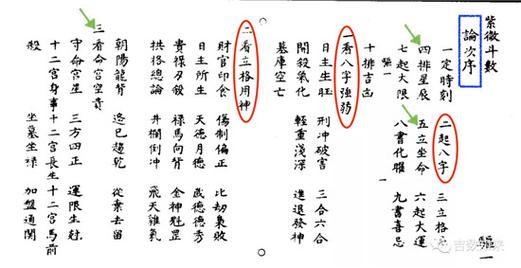 紫微斗數
論次序
一定時刻 二起八字 三立格
四排星辰 五立坐命 六起大運
七起大限 八書化曜 九書喜忌
十排吉凶
一看八字強弱
日主生旺 刑冲破害 三合六合
開殺氣化 輕重淺深 進退發神
墓庫空亡
二看立格用神
財官印食 傷制偏正 比劫梟敗
日主所生 天德月德 歲德德秀
貴祿刃殺 祿馬向背 金神魁罡
拱格總論 井欄倒冲 飛天雜氣
三看命宮空貴
朝陽龍背 逸巳趨乾 從棄去留
守命宮星 三方四正 運限生尅
十二宮身事 十二宮長生 十二宮馬前
殺 坐墓坐祿 加盤通關